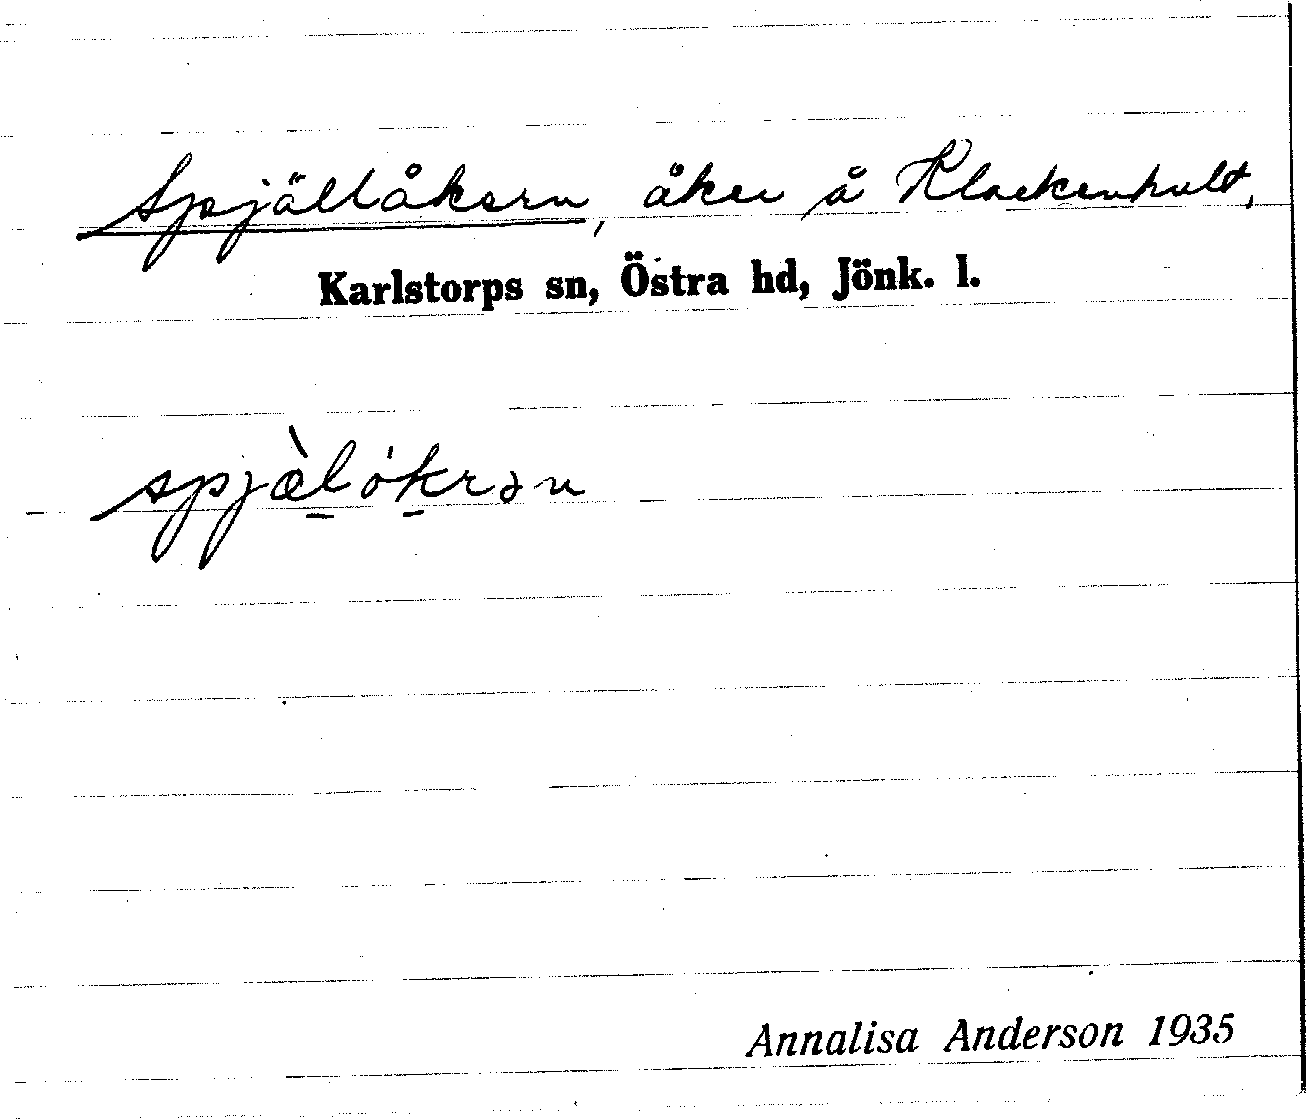 Spjällåkern, åker å Klockenhult,
Karlstorps sn, Östra hd, Jönk. l.
spjæ̀lókrən
Annalisa Anderson 1935